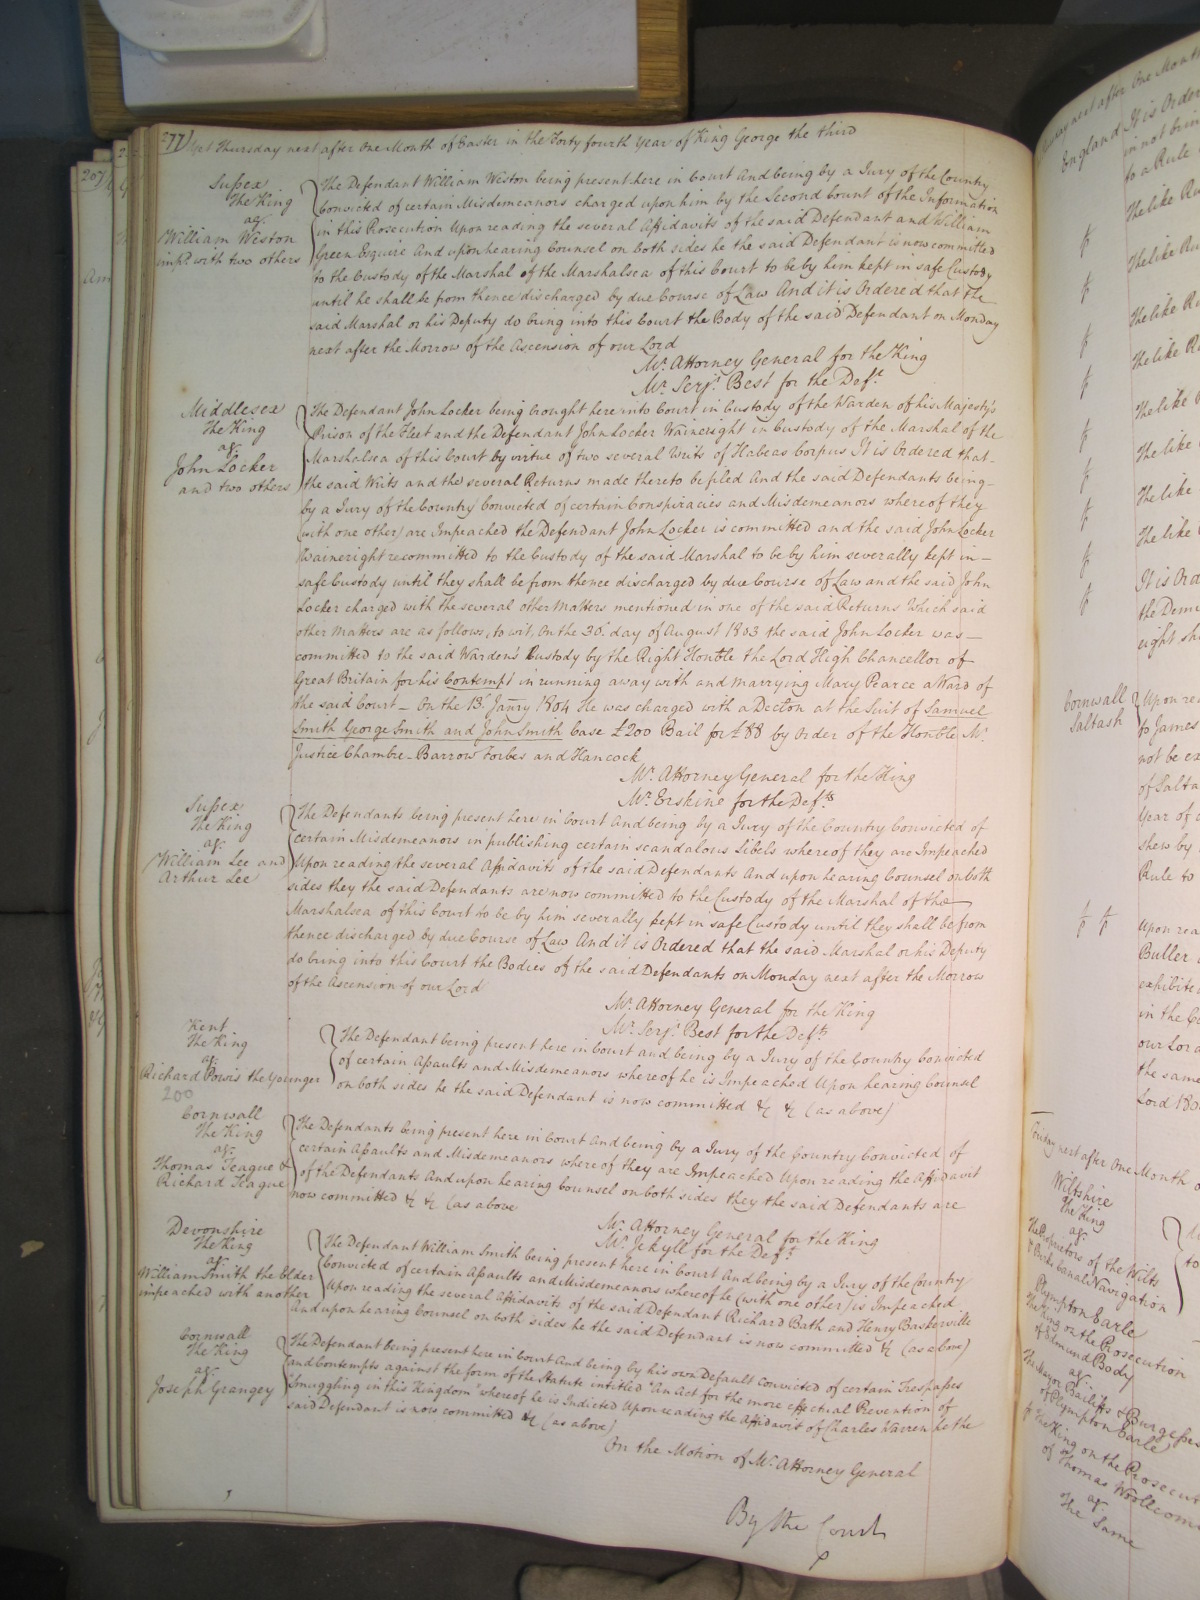 277) Yet Thursday next after One Month of Easter in the Forty fourth Year of King George the third
Sussex
The King
agt.
William Weston
imp.d with two others
The Defendant William Weston being present here in Court And being by a Jury of the Country
Convicted of certain Misdemeanors charged upon him by the Second Count of the Information
in this Prosecution Upon reading the several Affidavits of the said Defendant and William
Green Esquire And upon hearing Counsel on both sides he the said Defendant is now committed
to the Custody of the Marshal of the Marshalsea of this Court to be by him kept in safe Custody
until he shall be from thence discharged by due Course of Law And it is Ordered that the
said Marshal or his Deputy do bring into this Court the Body of the said Defendant on Monday
next after the Morrow of the Ascension of our Lord
Mr. Attorney General for the King
Mr. Serjt. Best for the Deft.
Middlesex
The King
agt.
John Locker
and two others
The Defendant John Locker being brought here into Court in Custody of the Warden of his Majesty's
Prison of the Fleet and the Defendant John Locker Wainwright in Custody of the Marshal of the
Marshalsea of this Court by virtue of two several Writs of Habeas Corpus It is Ordered that
the said Writs and the several Returns made thereto be filed And the said Defendants being
by a Jury of the Country Convicted of certain Conspiracies and Misdemeanors whereof they
(with one other) are Impeached the Defendant John Locker is committed and the said John Locker
Wainwright recommitted to the Custody of the said Marshal to be by him severally kept in
safe Custody until they shall be from thence discharged by due Course of Law and the said John
Locker charged with the several other Matters mentioned in one of the said Returns Which said
other Matters are as follows, to wit, On the 30th. day of August 1803 the said John Locker was
committed to the said Warden's Custody by the Right Honble the Lord High Chancellor of
Great Britain for his Contempt in running away with and marrying Mary Pearce a Ward of
the said Court — On the 13th. Janry 1804 He was charged with a Decton at the Suit of Samuel
Smith George Smith and John Smith Case £200 Bail for £88 by Order of the Honble Mr.
Justice Chambre — Barrow Forbes and Hancock
Mr. Attorney General for the King
Mr. Erskine for the Defts
Sussex
The King
agt.
William Lee and
Arthur Lee
The Defendants being present here in Court And being by a Jury of the Country Convicted of
certain Misdemeanors in publishing certain scandalous Libels whereof they are Impeached
Upon reading the several Affidavits of the said Defendants And upon hearing Counsel on both
sides they the said Defendants are now committed to the Custody of the Marshal of the
Marshalsea of this Court to be by him severally kept in safe Custody until they shall be from
thence discharged by due Course of Law And it is Ordered that the said Marshal or his Deputy
do bring into this Court the Bodies of the said Defendants on Monday next after the Morrow
of the Ascension of our Lord
Mr. Attorney General for the King
Mr. Serjt. Best for the Defts
Kent
The King
agt.
Richard Powis the Younger
200
The Defendant being present here in Court and being by a Jury of the Country Convicted
of certain Assaults and Misdemeanors whereof he is Impeached Upon hearing Counsel
on both sides he the said Defendant is now committed &c &c (as above)
Cornwall
The King
agt.
Thomas Teague &
Richard Teague
The Defendants being present here in Court And being by a Jury of the Country Convicted of
certain Assaults and Misdemeanors whereof they are Impeached Upon reading the Affidavit
of the Defendants And upon hearing Counsel on both sides they the said Defendants are
now committed &c &c (as above
Mr. Attorney General for the King
Mr. Jekyll for the Defts
Devonshire
The King
agt.
William Smith the Elder
impeached with another
The Defendant William Smith being present here in Court And being by a Jury of the Country
Convicted of certain Assaults and Misdemeanors whereof he (with one other) is Impeached
Upon reading the several Affidavits of the said Defendant Richard Bath and Henry Baskerville
And upon hearing Counsel on both sides he the said Defendant is now committed &c (as above)
Cornwall
The King
agt.
Joseph Grangey
The Defendant being present here in Court And being by his own Default Convicted of certain Trespasses
and Contempts against the form of the Statute intitled "An Act for the more effectual Prevention of
Smuggling in this Kingdom" whereof he is Indicted Upon reading the Affidavit of Charles Warren he the
said Defendant is now committed &c (as above)
On the Motion of Mr. Attorney General
By the Court
Thursday next after One Month
England It is Order
in not brin
to a Rule
The like Ru
The like Ru
The like Ru
The like Ru
The like
The like
The like
The like
It is Ord
the Dem
eight sh
Cornwall
Saltash
Upon rea
to James
not be ex
of Salta
Year of o
shew by
Rule to
Upon rea
Buller
exhibite
in the Co
our Lord
the same
Lord 180
Friday next after One Month o
Wiltshire
The King
agt.
The Proprietors of the Wilts
& Berks Canal Navigation
Plympton Earle
The King on the Prosecution
of Edmund Body
agt.
The Mayor Bailiffs & Burgesses
of Plympton Earle
The King on the Prosecut
of Thomas Woollcom
agt.
The Same